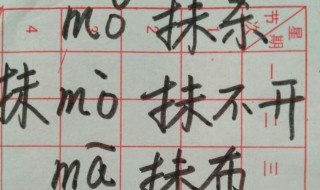 mǒ 抹杀
抹 mò 抹不开
mā 抹布
星期
节次
2
4
一
三